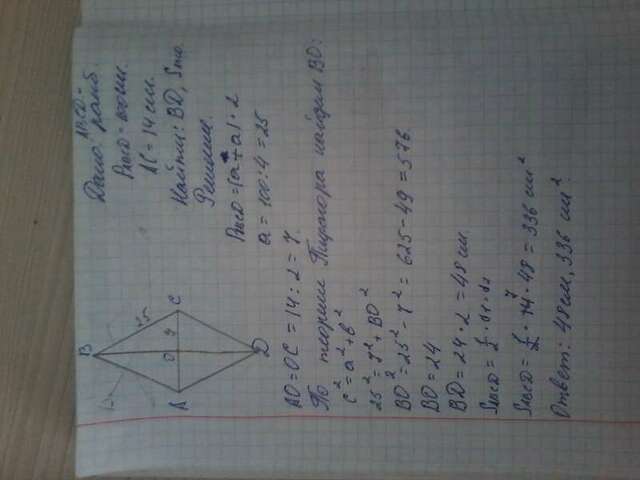 Дано: ABCD –
ромб.
Pавсд = 100 см.
AC = 14 см.
Найти: BD, Sпло.
Решение.
Pавсд = (a + a) · 2
a = 100 : 4 = 25
B
25
A
O
7
C
D
AO = OC = 14 : 2 = 7.
По теореме Пифагора найдём BO:
c² = a² + b²
25² = 7² + BO²
BO² = 25² - 7² = 625 - 49 = 576.
BO = 24
BD = 24 · 2 = 48 см.
Sавсд = 1/2 · d1 · d2
Sавсд = 1/2 · 14 · 48 = 336 см²
7
Ответ: 48 см, 336 см².